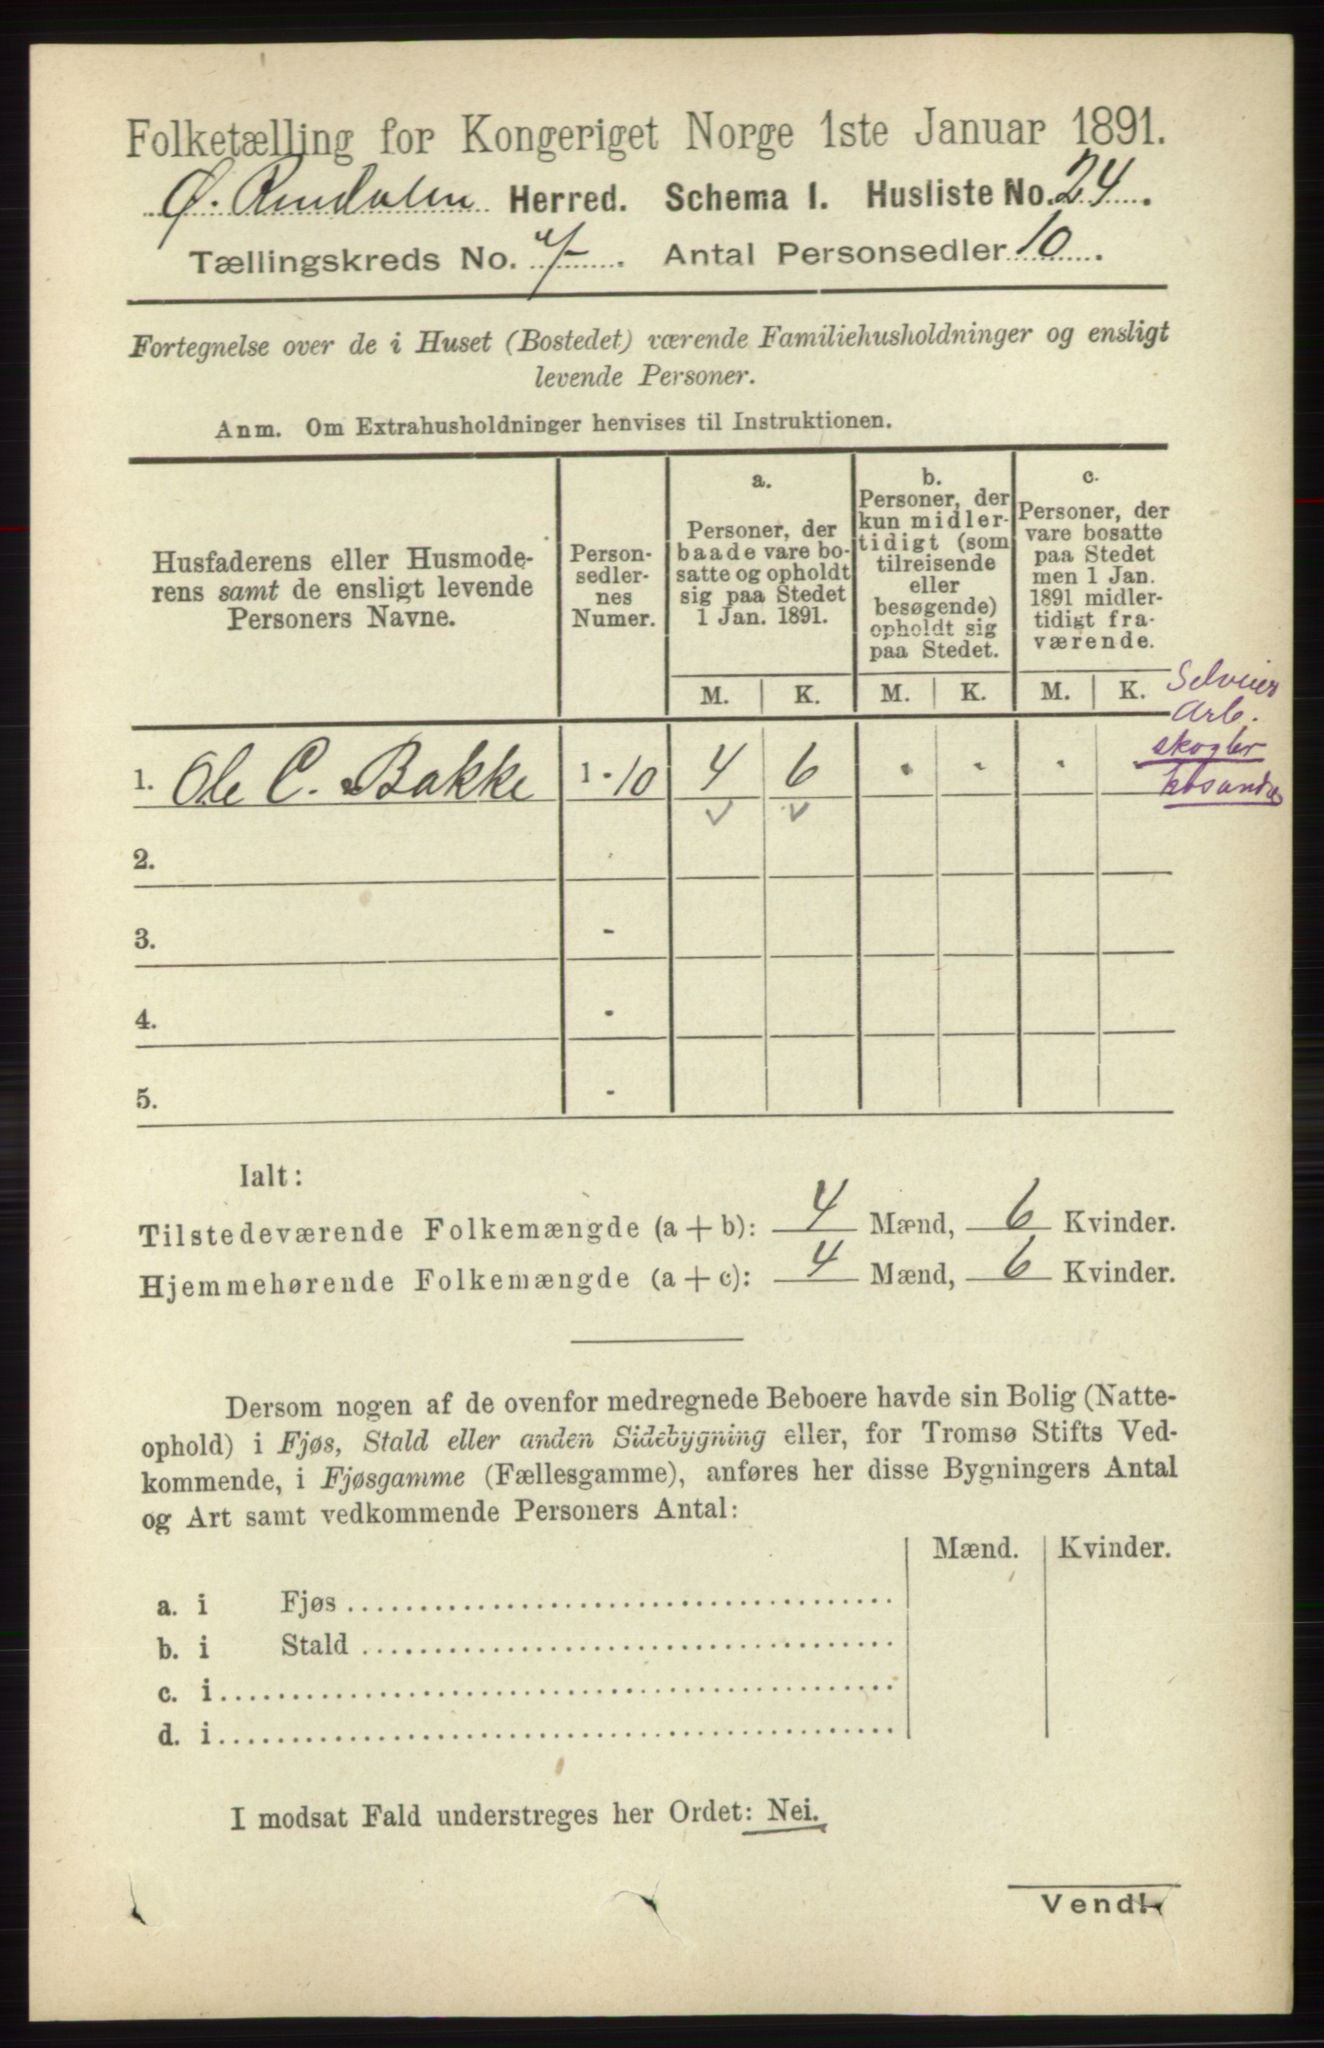 Folketælling for Kongeriget Norge 1ste Januar 1891.
Ø. Rendalen Herred. Schema I. Husliste No. 24.
Tællingskreds No. 7. Antal Personsedler 10.
Fortegnelse over de i Huset (Bostedet) værende Familiehusholdninger og ensligt
levende Personer.
Anm. Om Extrahusholdninger henvises til Instruktionen.
Husfaderens eller Husmode-
rens samt de ensligt levende
Personers Navne.
Person-
sedler-
nes
Numer.
a.
Personer, der
baade vare bo-
satte og opholdt
sig paa Stedet
1 Jan. 1891.
b.
Personer, der
kun midler-
tidigt (som
tilreisende
eller
besøgende)
opholdt sig
paa Stedet.
c.
Personer, der
vare bosatte
paa Stedet
men 1 Jan.
1891 midler-
tidigt fra-
værende.
M. K. M. K. M. K.
Selveier
Arb.
1. Ole C. Bakke 1-10 4 6 - - -
2.
3. -
4. -
5. -
Ialt:
Tilstedeværende Folkemængde (a + b): 4 Mænd, 6 Kvinder.
Hjemmehørende Folkemængde (a + c): 4 Mænd, 6 Kvinder.
Dersom nogen af de ovenfor medregnede Beboere havde sin Bolig (Natte-
ophold) i Fjøs, Stald eller anden Sidebygning eller, for Tromsø Stifts Ved-
kommende, i Fjøsgamme (Fællesgamme), anføres her disse Bygningers Antal
og Art samt vedkommende Personers Antal:
Mænd. Kvinder.
a. i Fjøs
b. i Stald
c. i
d. i
I modsat Fald understreges her Ordet: Nei.
Vendt.